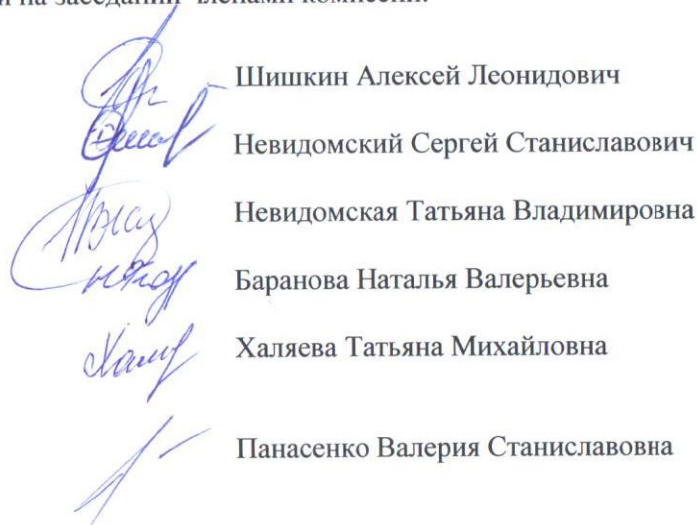 на заседании членами комиссии.
Шишкин Алексей Леонидович
Невидомский Сергей Станиславович
Невидомская Татьяна Владимировна
Баранова Наталья Валерьевна
Халяева Татьяна Михайловна
Панасенко Валерия Станиславовна